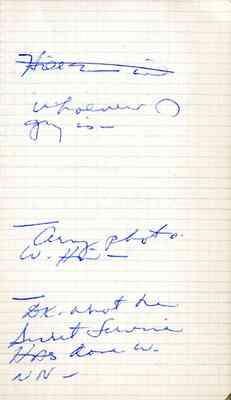 whoever
guy is —
— Any photo.
W. H
— DK. what he
Secret Service
Has done w.
NN —